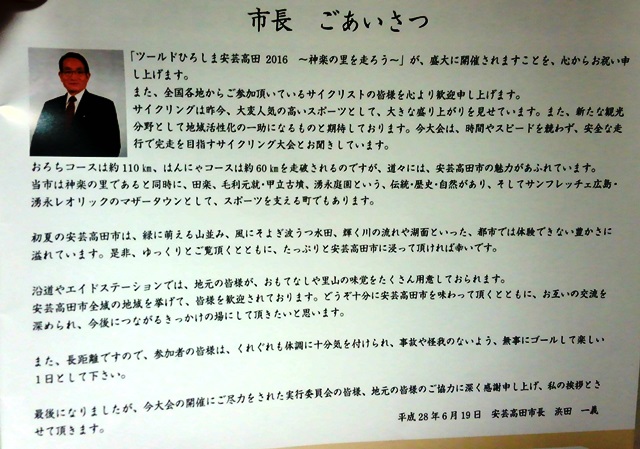 市長　ごあいさつ
「ツールドひろしま安芸高田 2016　～神楽の里を走ろう～」が、盛大に開催されますことを、心からお祝い申
し上げます。
また、全国各地からご参加頂いているサイクリストの皆様を心より歓迎申し上げます。
サイクリングは昨今、大変人気の高いスポーツとして、大きな盛り上がりを見せています。また、新たな観光
分野として地域活性化の一助になるものと期待しております。今大会は、時間やスピードを競わず、安全な走
行で完走を目指すサイクリング大会とお聞きしています。
おろちコースは約 110 km、はんにゃコースは約 60 kmを走破されるのですが、道々には、安芸高田市の魅力があふれています。
当市は神楽の里であると同時に、田楽、毛利元就・甲立古墳、湧永庭園という、伝統・歴史・自然があり、そしてサンフレッチェ広島・
湧永レオリックのマザータウンとして、スポーツを支える町でもあります。
初夏の安芸高田市は、緑に萌える山並み、風にそよぎ波うつ水田、輝く川の流れや湖面といった、都市では体験できない豊かさに
溢れています。是非、ゆっくりとご覧頂くとともに、たっぷりと安芸高田市に浸って頂ければ幸いです。
沿道やエイドステーションでは、地元の皆様が、おもてなしや里山の味覚をたくさん用意しておられます。
安芸高田市全域の地域を挙げて、皆様を歓迎されております。どうぞ十分に安芸高田市を味わって頂くとともに、お互いの交流を
深められ、今後につながるきっかけの場にして頂きたいと思います。
また、長距離ですので、参加者の皆様は、くれぐれも体調に十分気を付けられ、事故や怪我のないよう、無事にゴールして楽しい
１日として下さい。
最後になりましたが、今大会の開催にご尽力をされた実行委員会の皆様、地元の皆様のご協力に深く感謝申し上げ、私の挨拶とさ
せて頂きます。
平成 28 年 6 月 19 日　安芸高田市長　浜田　一義